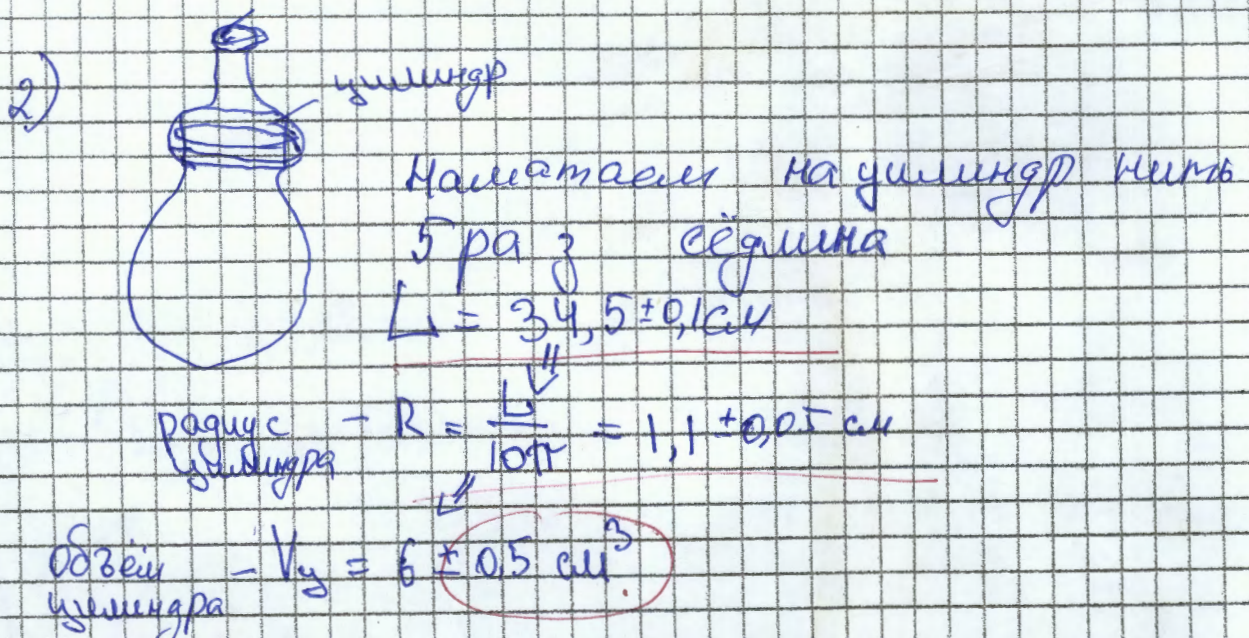 2)
цилиндр
Наматаем на цилиндр нить
5 раз её длина
L = 34,5 ± 0,1 см
радиус цилиндра - R = L / 10π = 1,1 ± 0,05 см
объём цилиндра - Vц = 6 ± 0,5 см³